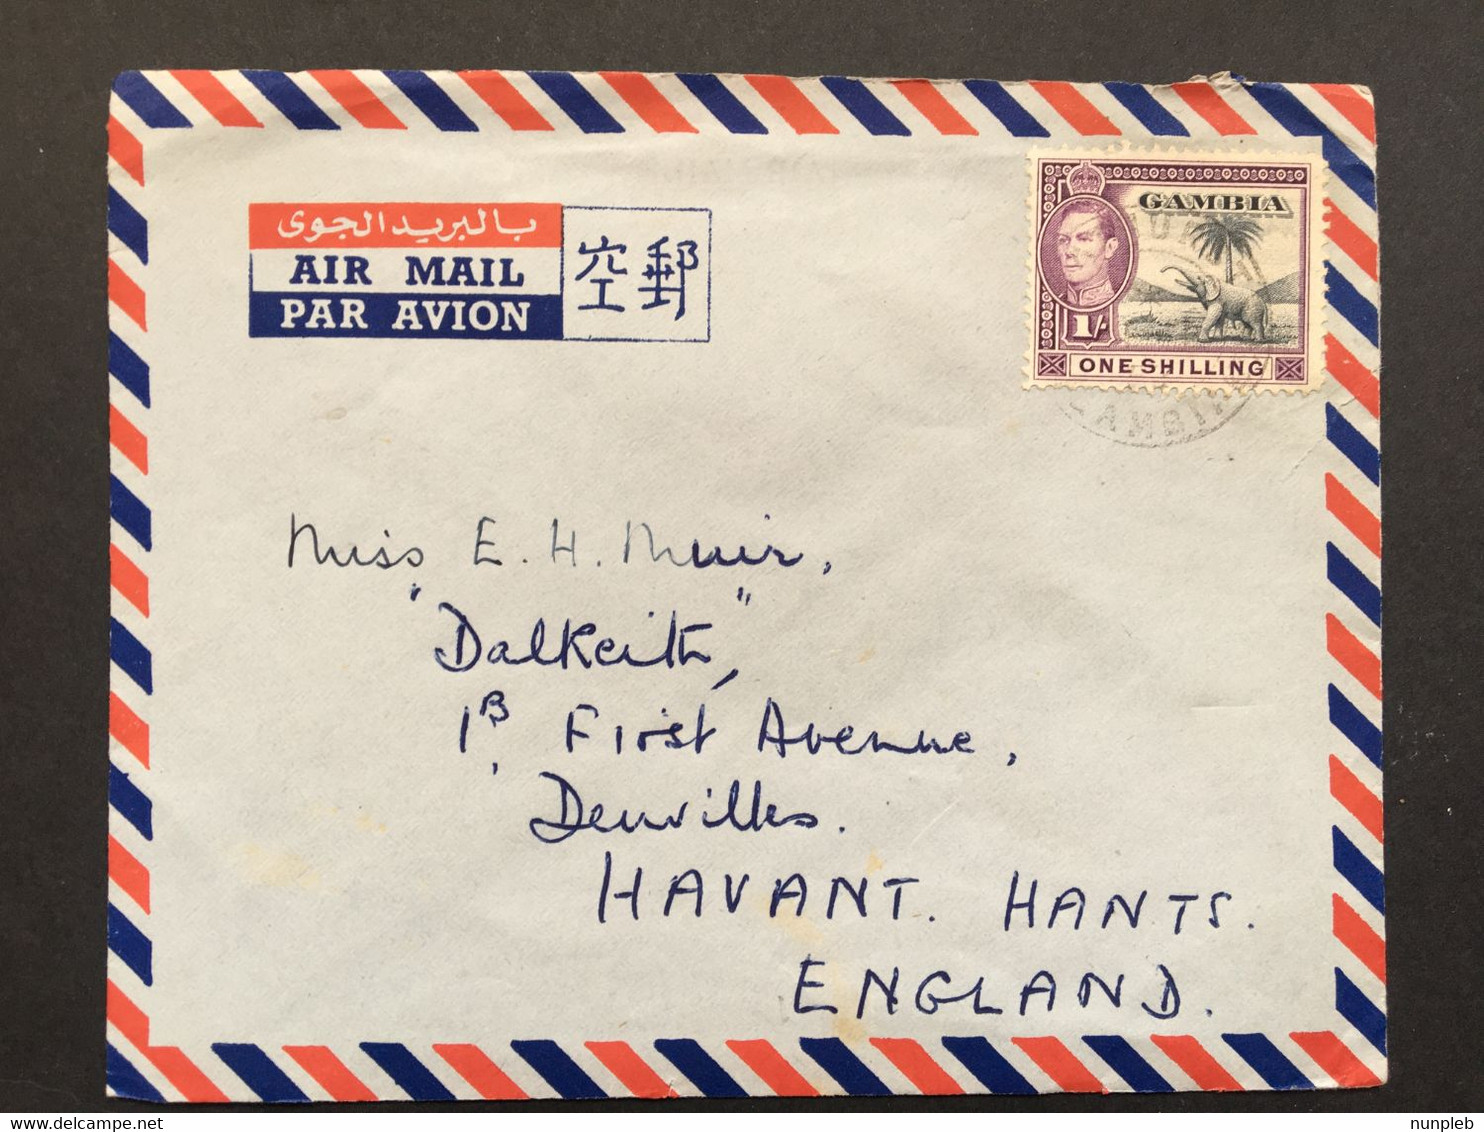 بالبريد الجوى
AIR MAIL
PAR AVION
空郵
GAMBIA
1/-
ONE SHILLING
GAMBIA
Miss E. H. Muir,
"Dalkeith",
1B, First Avenue,
Denvilles.
HAVANT. HANTS.
ENGLAND.
delcampe.net
nunpleb